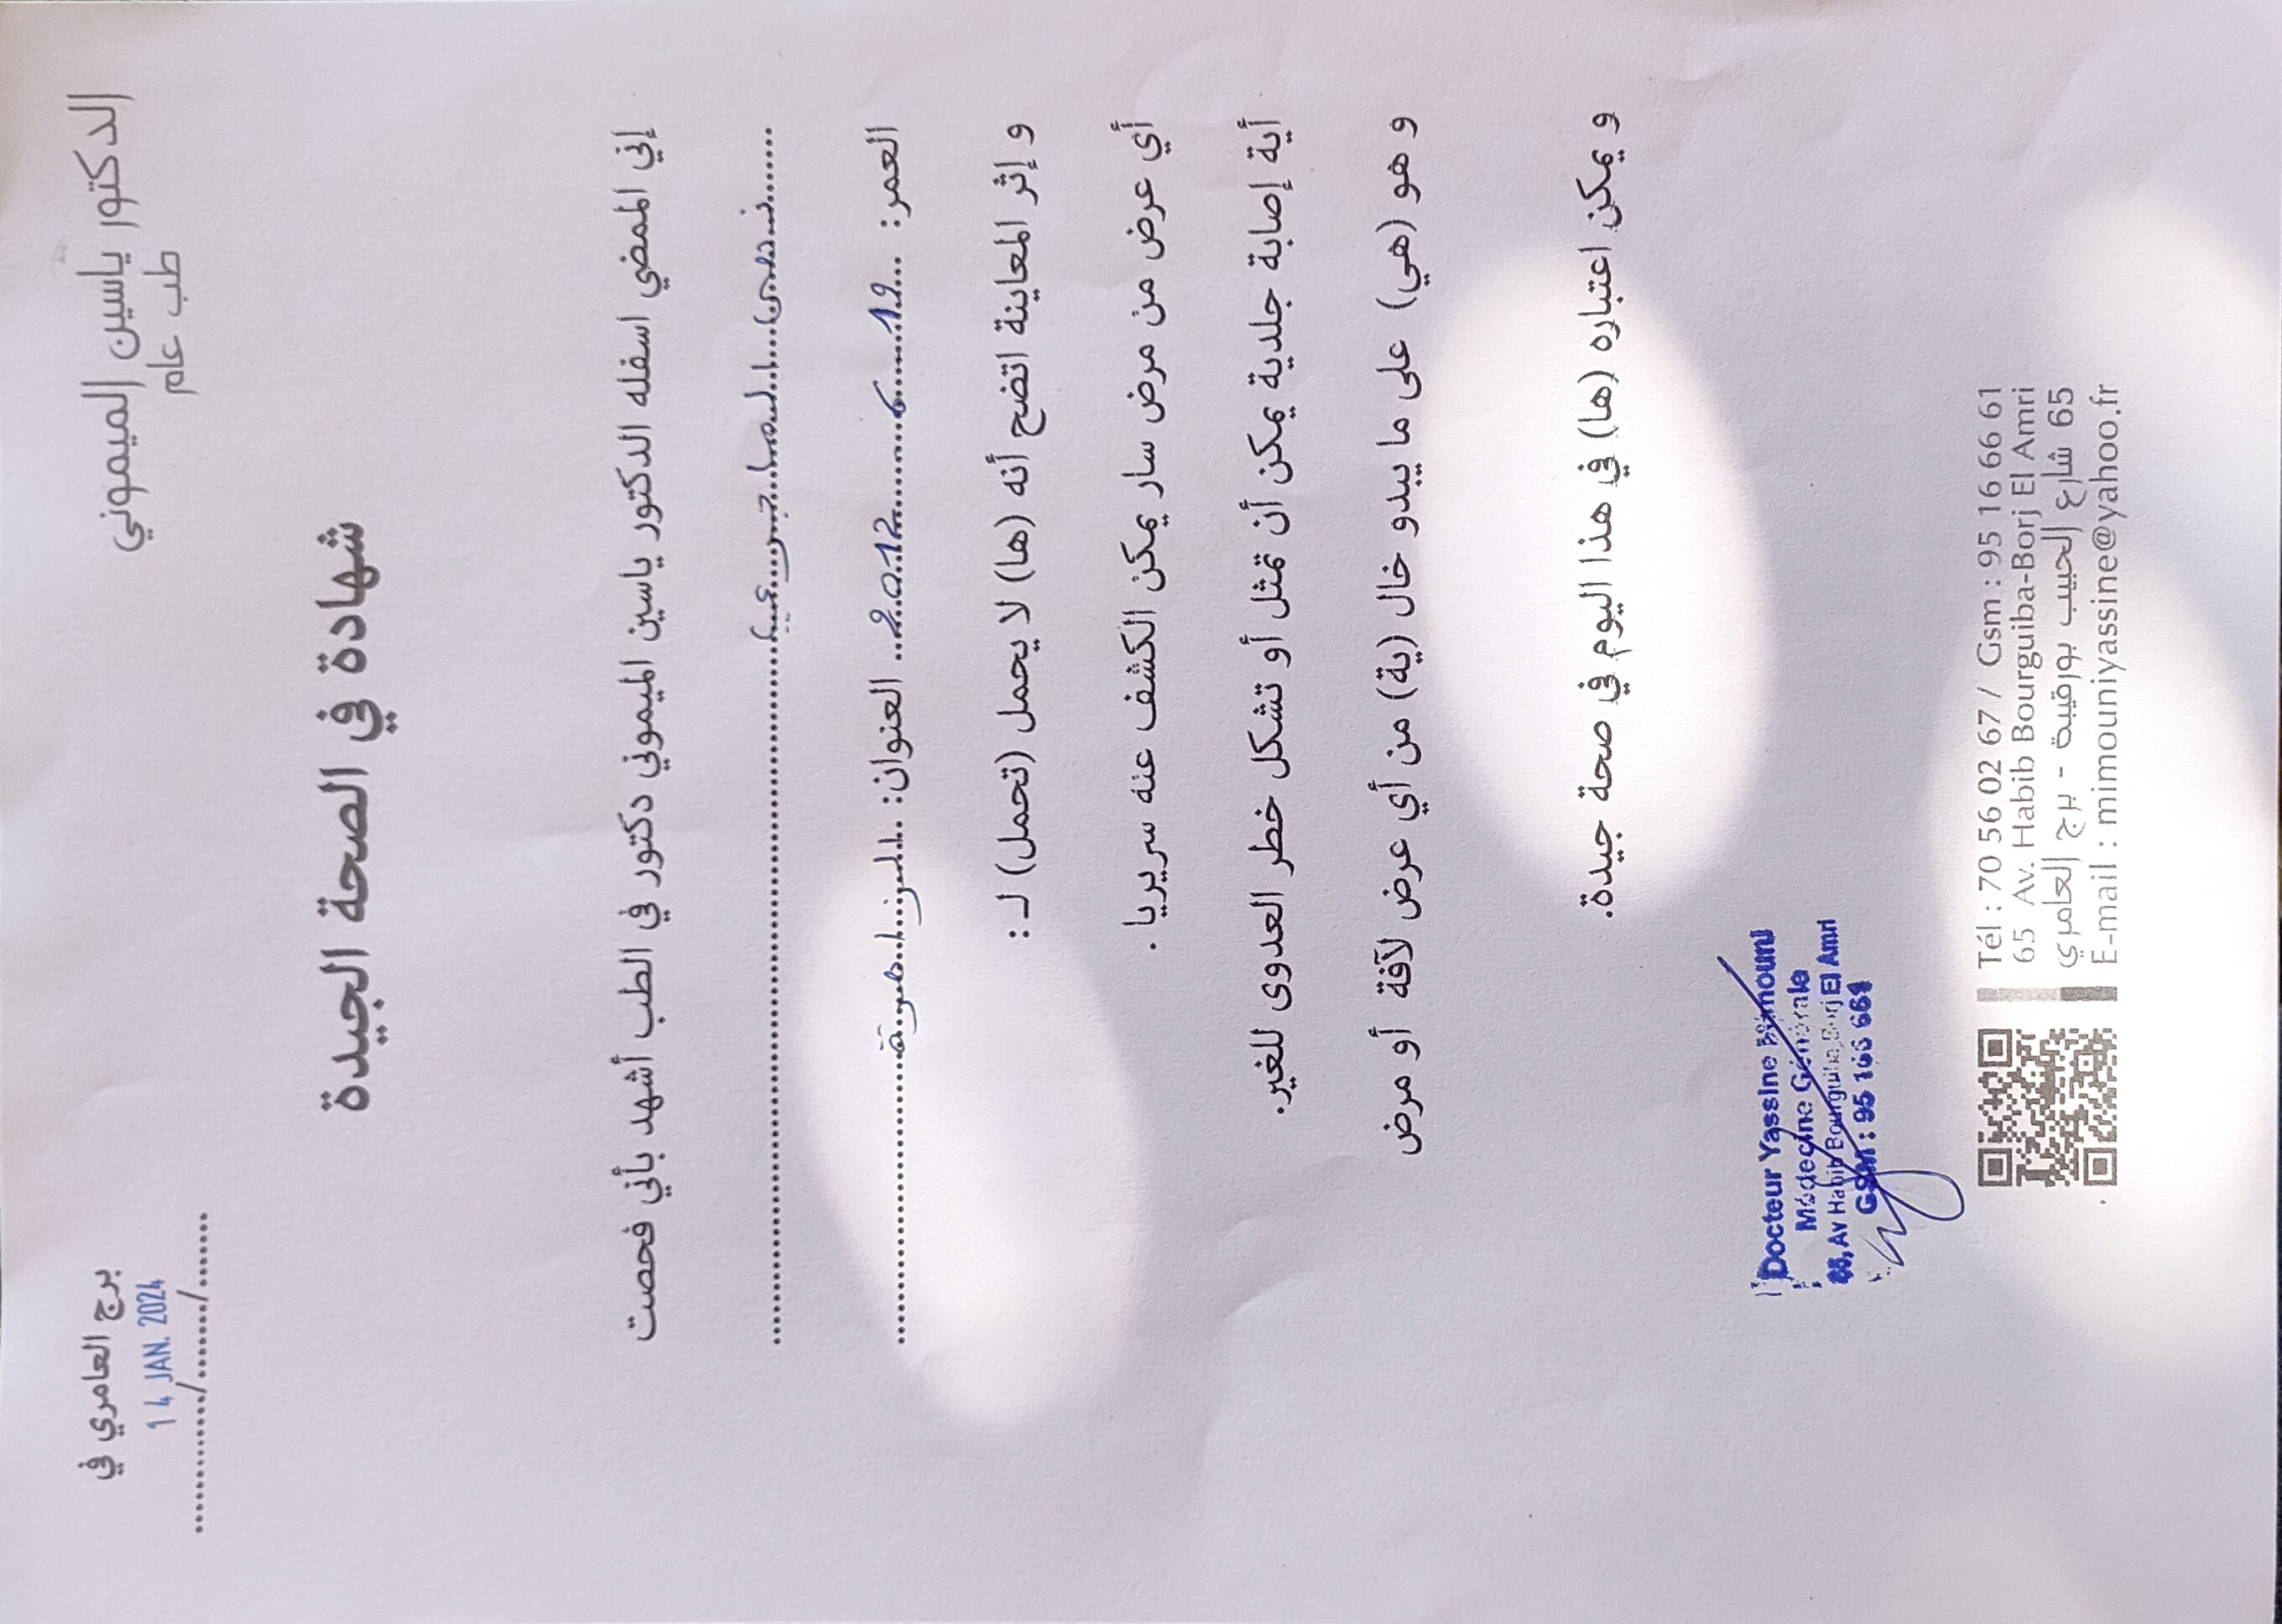 الدكتور ياسين الميموني
طب عام
برج العامري في
14 JAN. 2024
............/......../........
شهادة في الصحة الجيدة
إني الممضي اسفله الدكتور ياسين الميموني دكتور في الطب أشهد بأني فحصت
العمر: 19 2012 العنوان:
و إثر المعاينة اتضح أنه (ها) لا يحمل (تحمل) لـ :
أي عرض من مرض سار يمكن الكشف عنه سريريا .
أية إصابة جلدية يمكن أن تمثل أو تشكل خطر العدوى للغير.
و هو (هي) على ما يبدو خال (ية) من أي عرض لآفة أو مرض
و يمكن اعتباره (ها) في هذا اليوم في صحة جيدة.
Docteur Yassine Mimouni
Médecine Générale
65, Av Habib Bourguiba, Borj El Amri
GSM : 95 166 661
Tél : 70 56 02 67 / Gsm : 95 16 66 61
65 Av. Habib Bourguiba-Borj El Amri
65 شارع الحبيب بورقيبة - برج العامري
E-mail : mimouniyassine@yahoo.fr